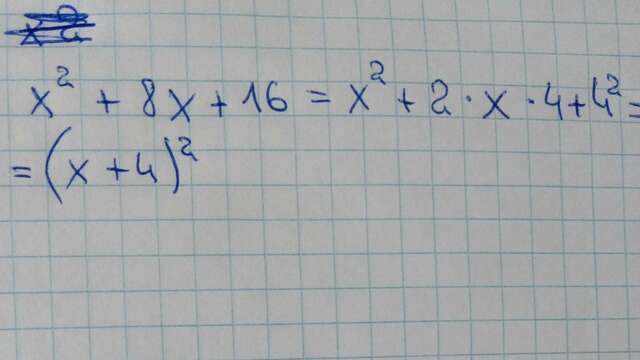 x² + 8x + 16 = x² + 2 · x · 4 + 4² =
= (x + 4)²